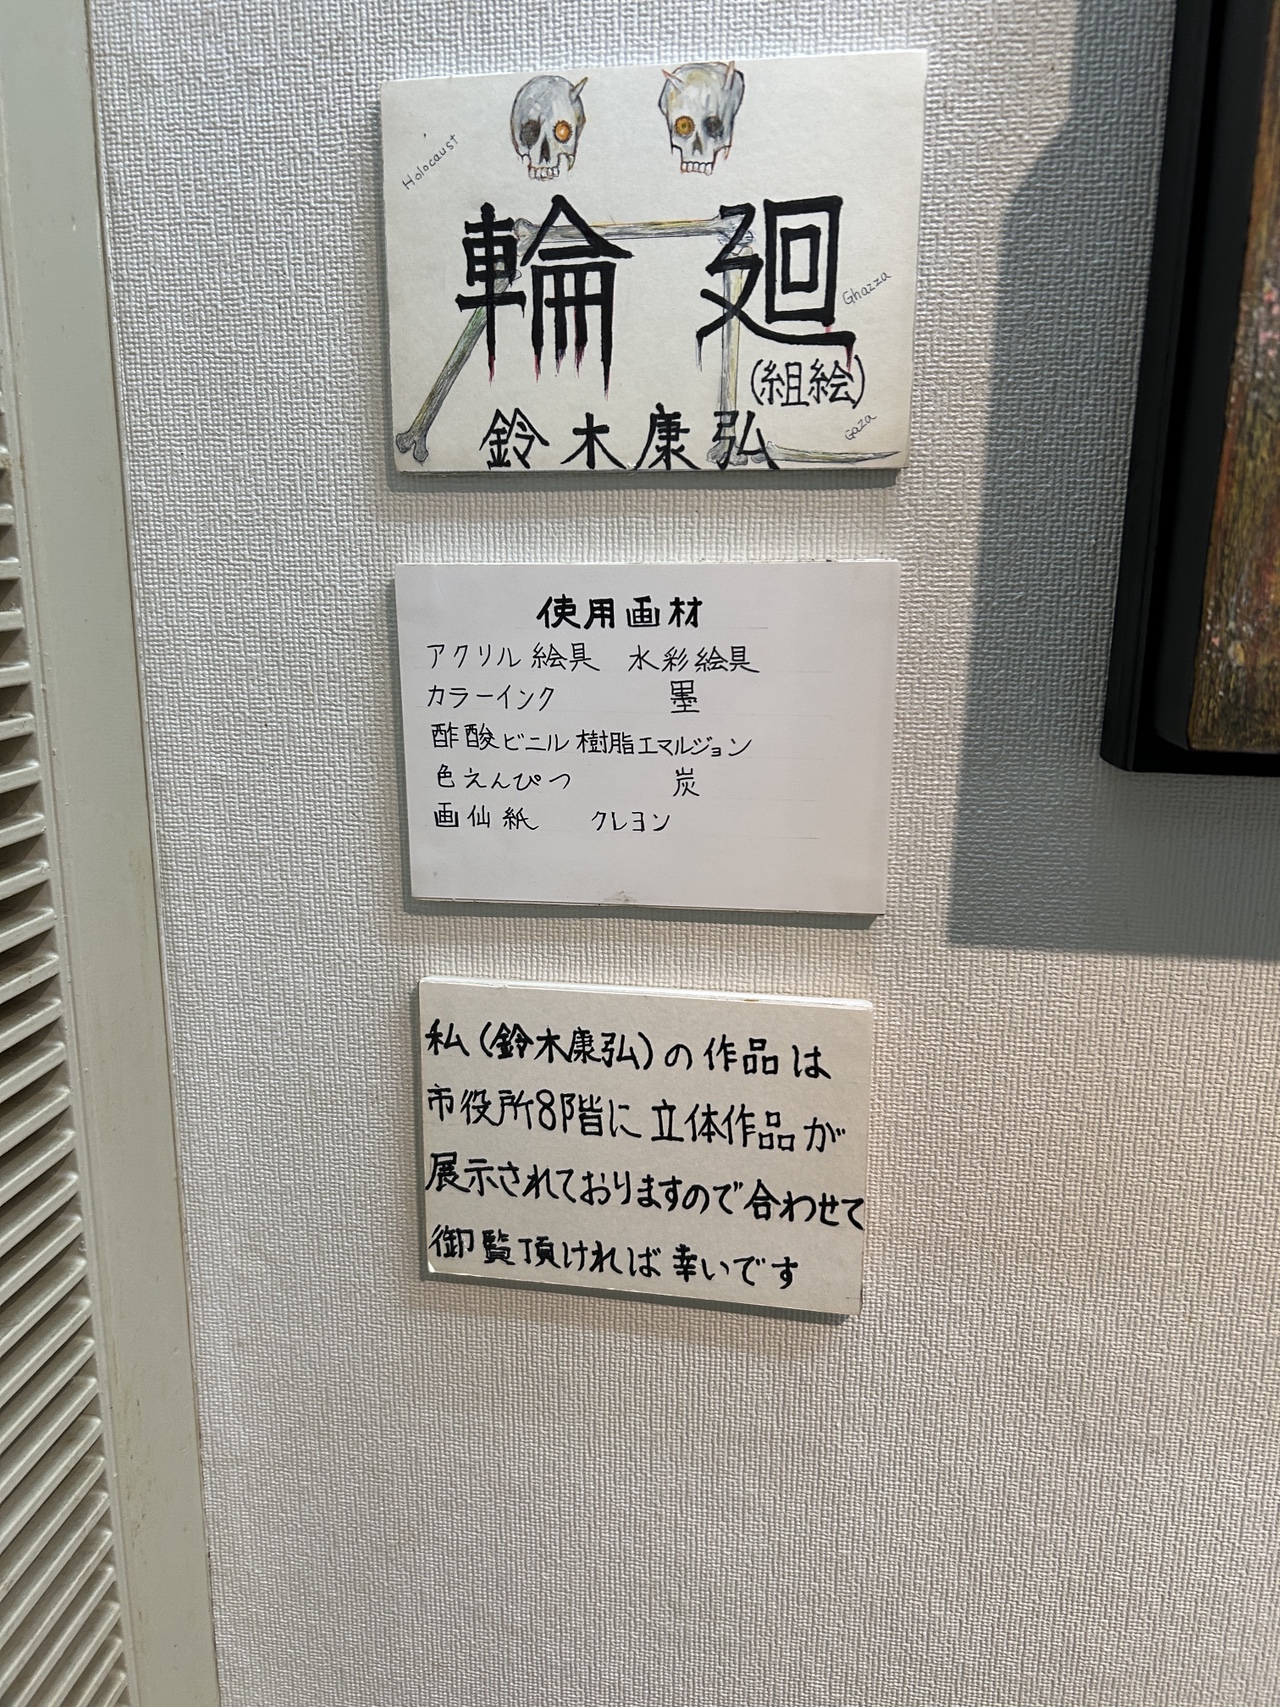 Holocaust
輪廻
Ghazza
(組絵)
Gaza
鈴木康弘
使用画材
アクリル絵具 水彩絵具
カラーインク 墨
酢酸ビニル樹脂エマルジョン
色えんぴつ 炭
画仙紙 クレヨン
私(鈴木康弘)の作品は
市役所8階に立体作品が
展示されておりますので合わせて
御覧頂ければ幸いです